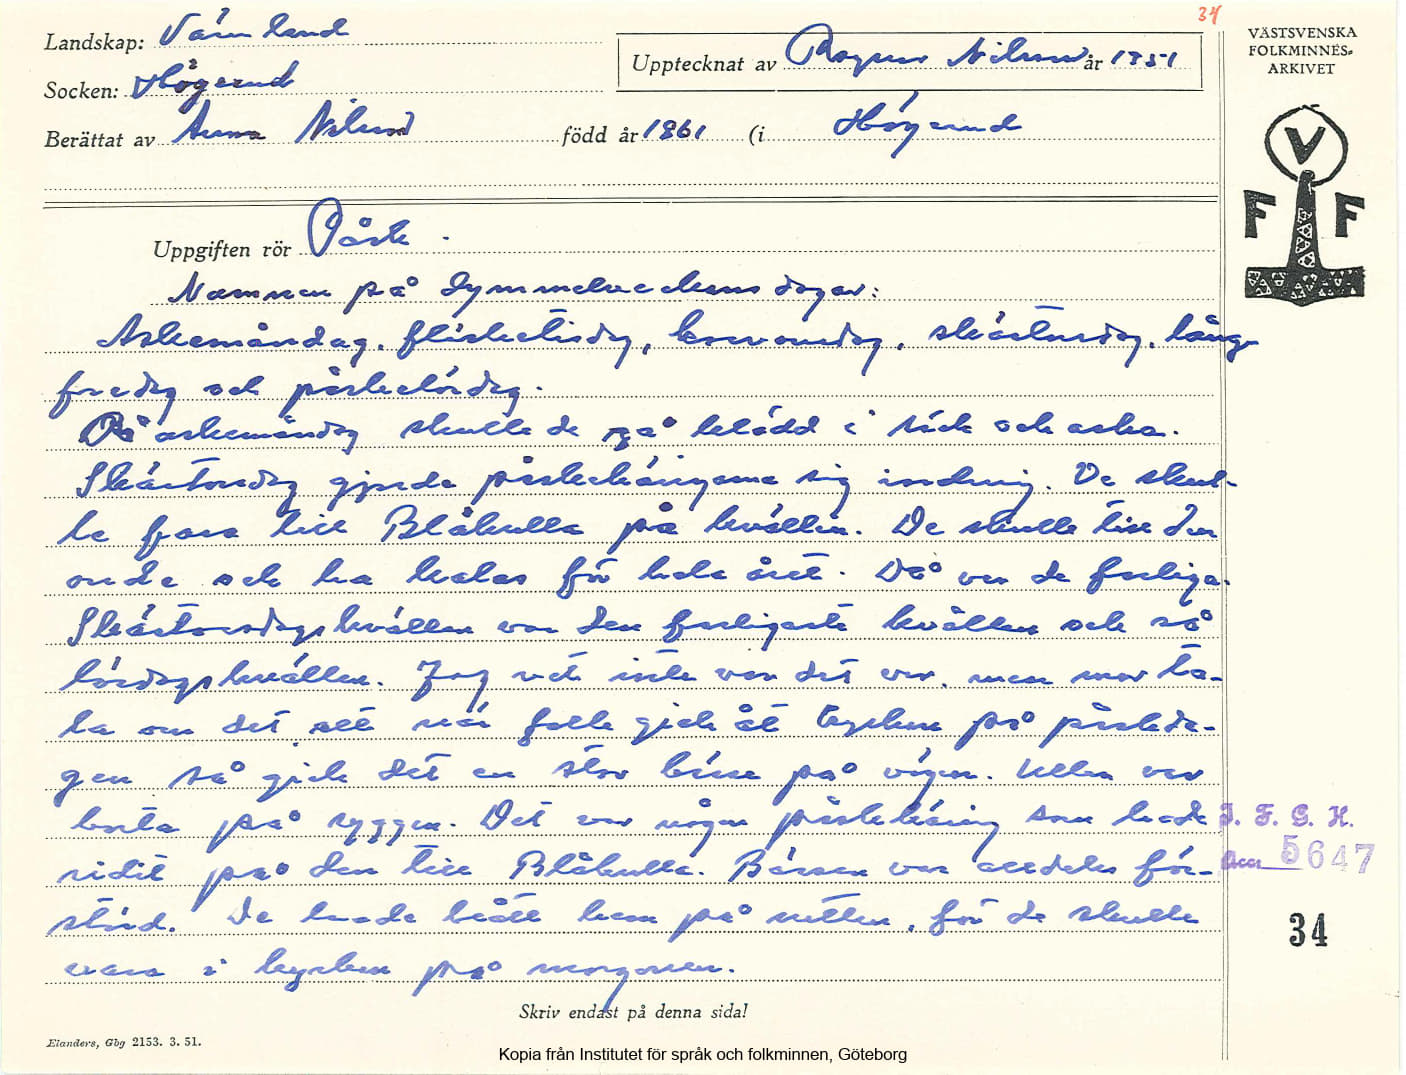 34
Landskap: Värmland
VÄSTSVENSKA
FOLKMINNES-
ARKIVET
Upptecknat av Ragnar Nilsson år 1951
Socken: Högerud
Berättat av Anna Nilsson född år 1861 (i Högerud
V
F F
Uppgiften rör Påsk.
Namnen på dymmelveckans dagar:
Askemåndag, fläsketisdag, korvonsdag, skärtorsdag, lång-
fredag och påskelördag.
På askemåndag skulle de gå klädd i säck och aska.
Skärtorsdag gjorde påskekäringarna sig indrig. De skul-
le fara till Blåkulla på kvällen. De skulle till den
onde och ha kalas för hela året. Då var de farliga.
Skärtorsdagskvällen var den farligaste kvällen och så
lördagskvällen. Jag vet inte var det var, men mor ta-
la om det att när folk gick åt kyrkan på påskda-
gen så gick det en stor bärse på vägen. Ullen var
borta på ryggen. Det var någon påskekäring som hade
ridit på den till Blåkulla. Bärsen var alldeles för-
störd. De hade brått hem på natten, för de skulle
vara i kyrkan på morgonen.
I. F. G. H.
Acc 5647
34
Skriv endast på denna sida!
Elanders, Gbg 2153. 3. 51.
Kopia från Institutet för språk och folkminnen, Göteborg